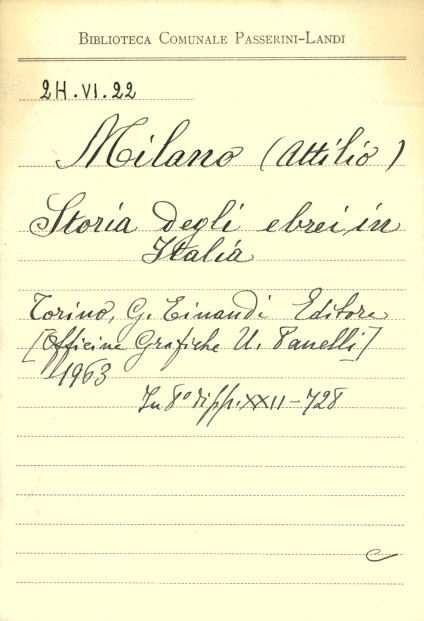 BIBLIOTECA COMUNALE PASSERINI-LANDI
2H.VI.22
Milano (Attilio)
Storia degli ebrei in
Italia
Torino, G. Einaudi Editore
[Officine Grafiche U. Panelli]
1963
In 8° di pp. XXII-728
C